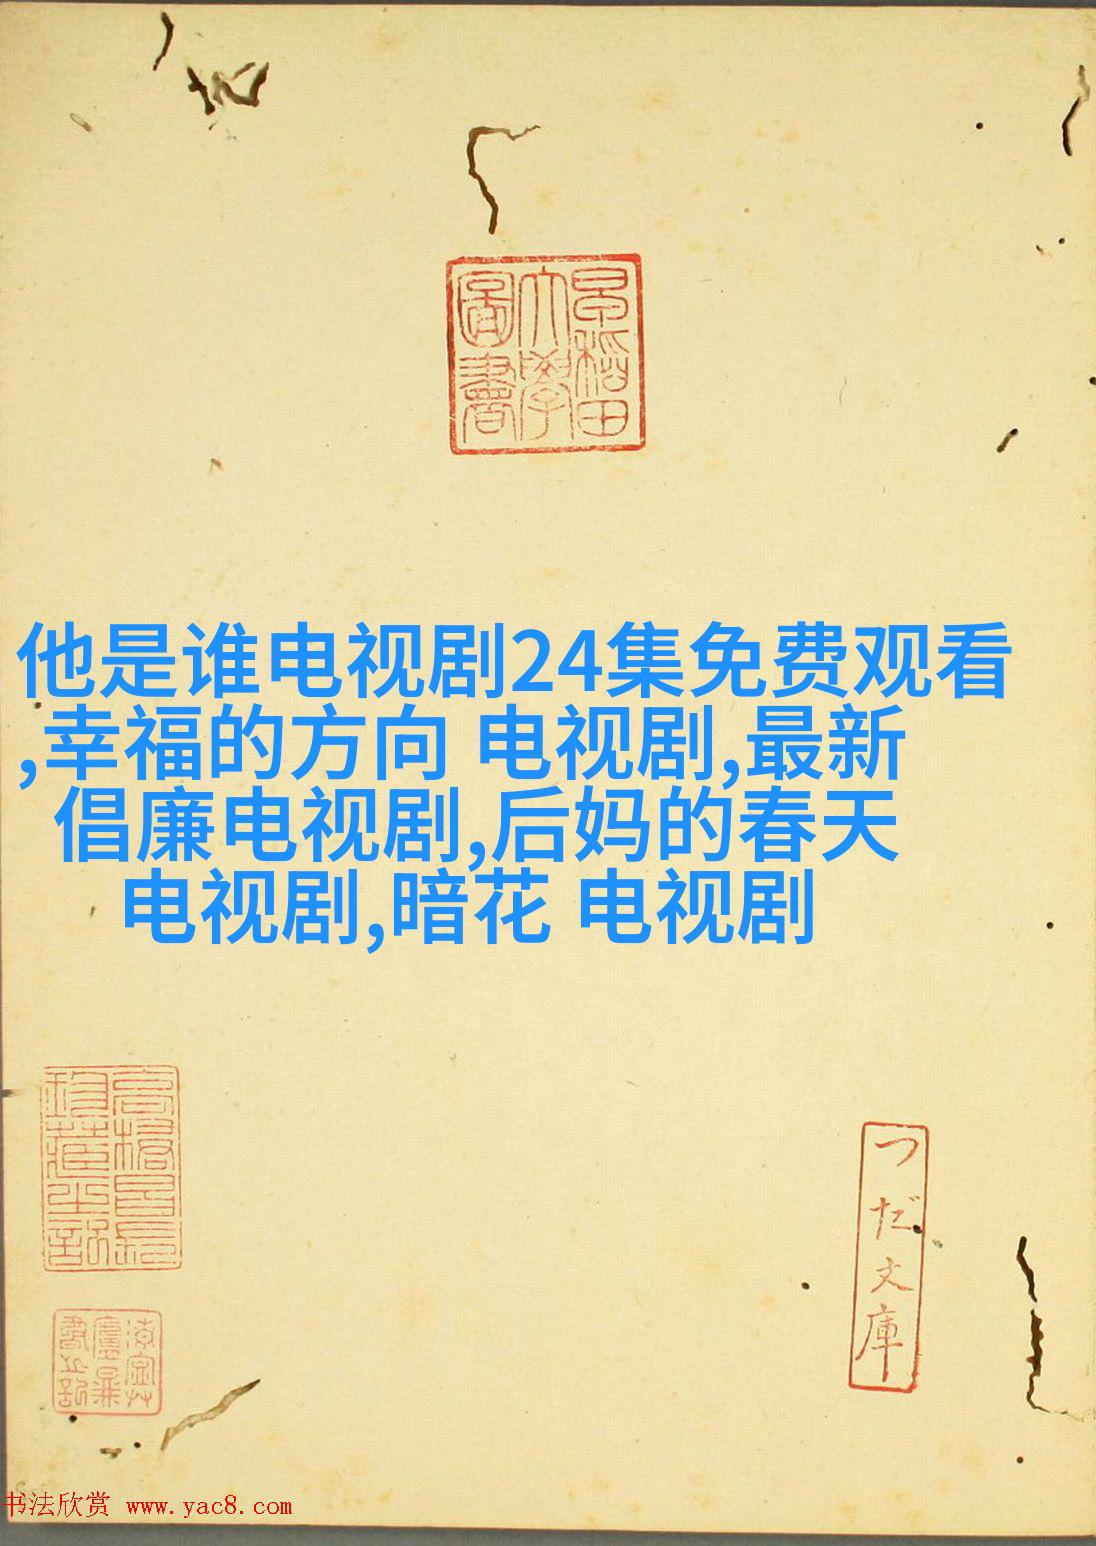 早稻田
大學
圖書
他是谁电视剧24集免费观看
,幸福的方向 电视剧,最新
倡廉电视剧,后妈的春天
电视剧,暗花 电视剧
つだ文庫
书法欣赏 www.yac8.com